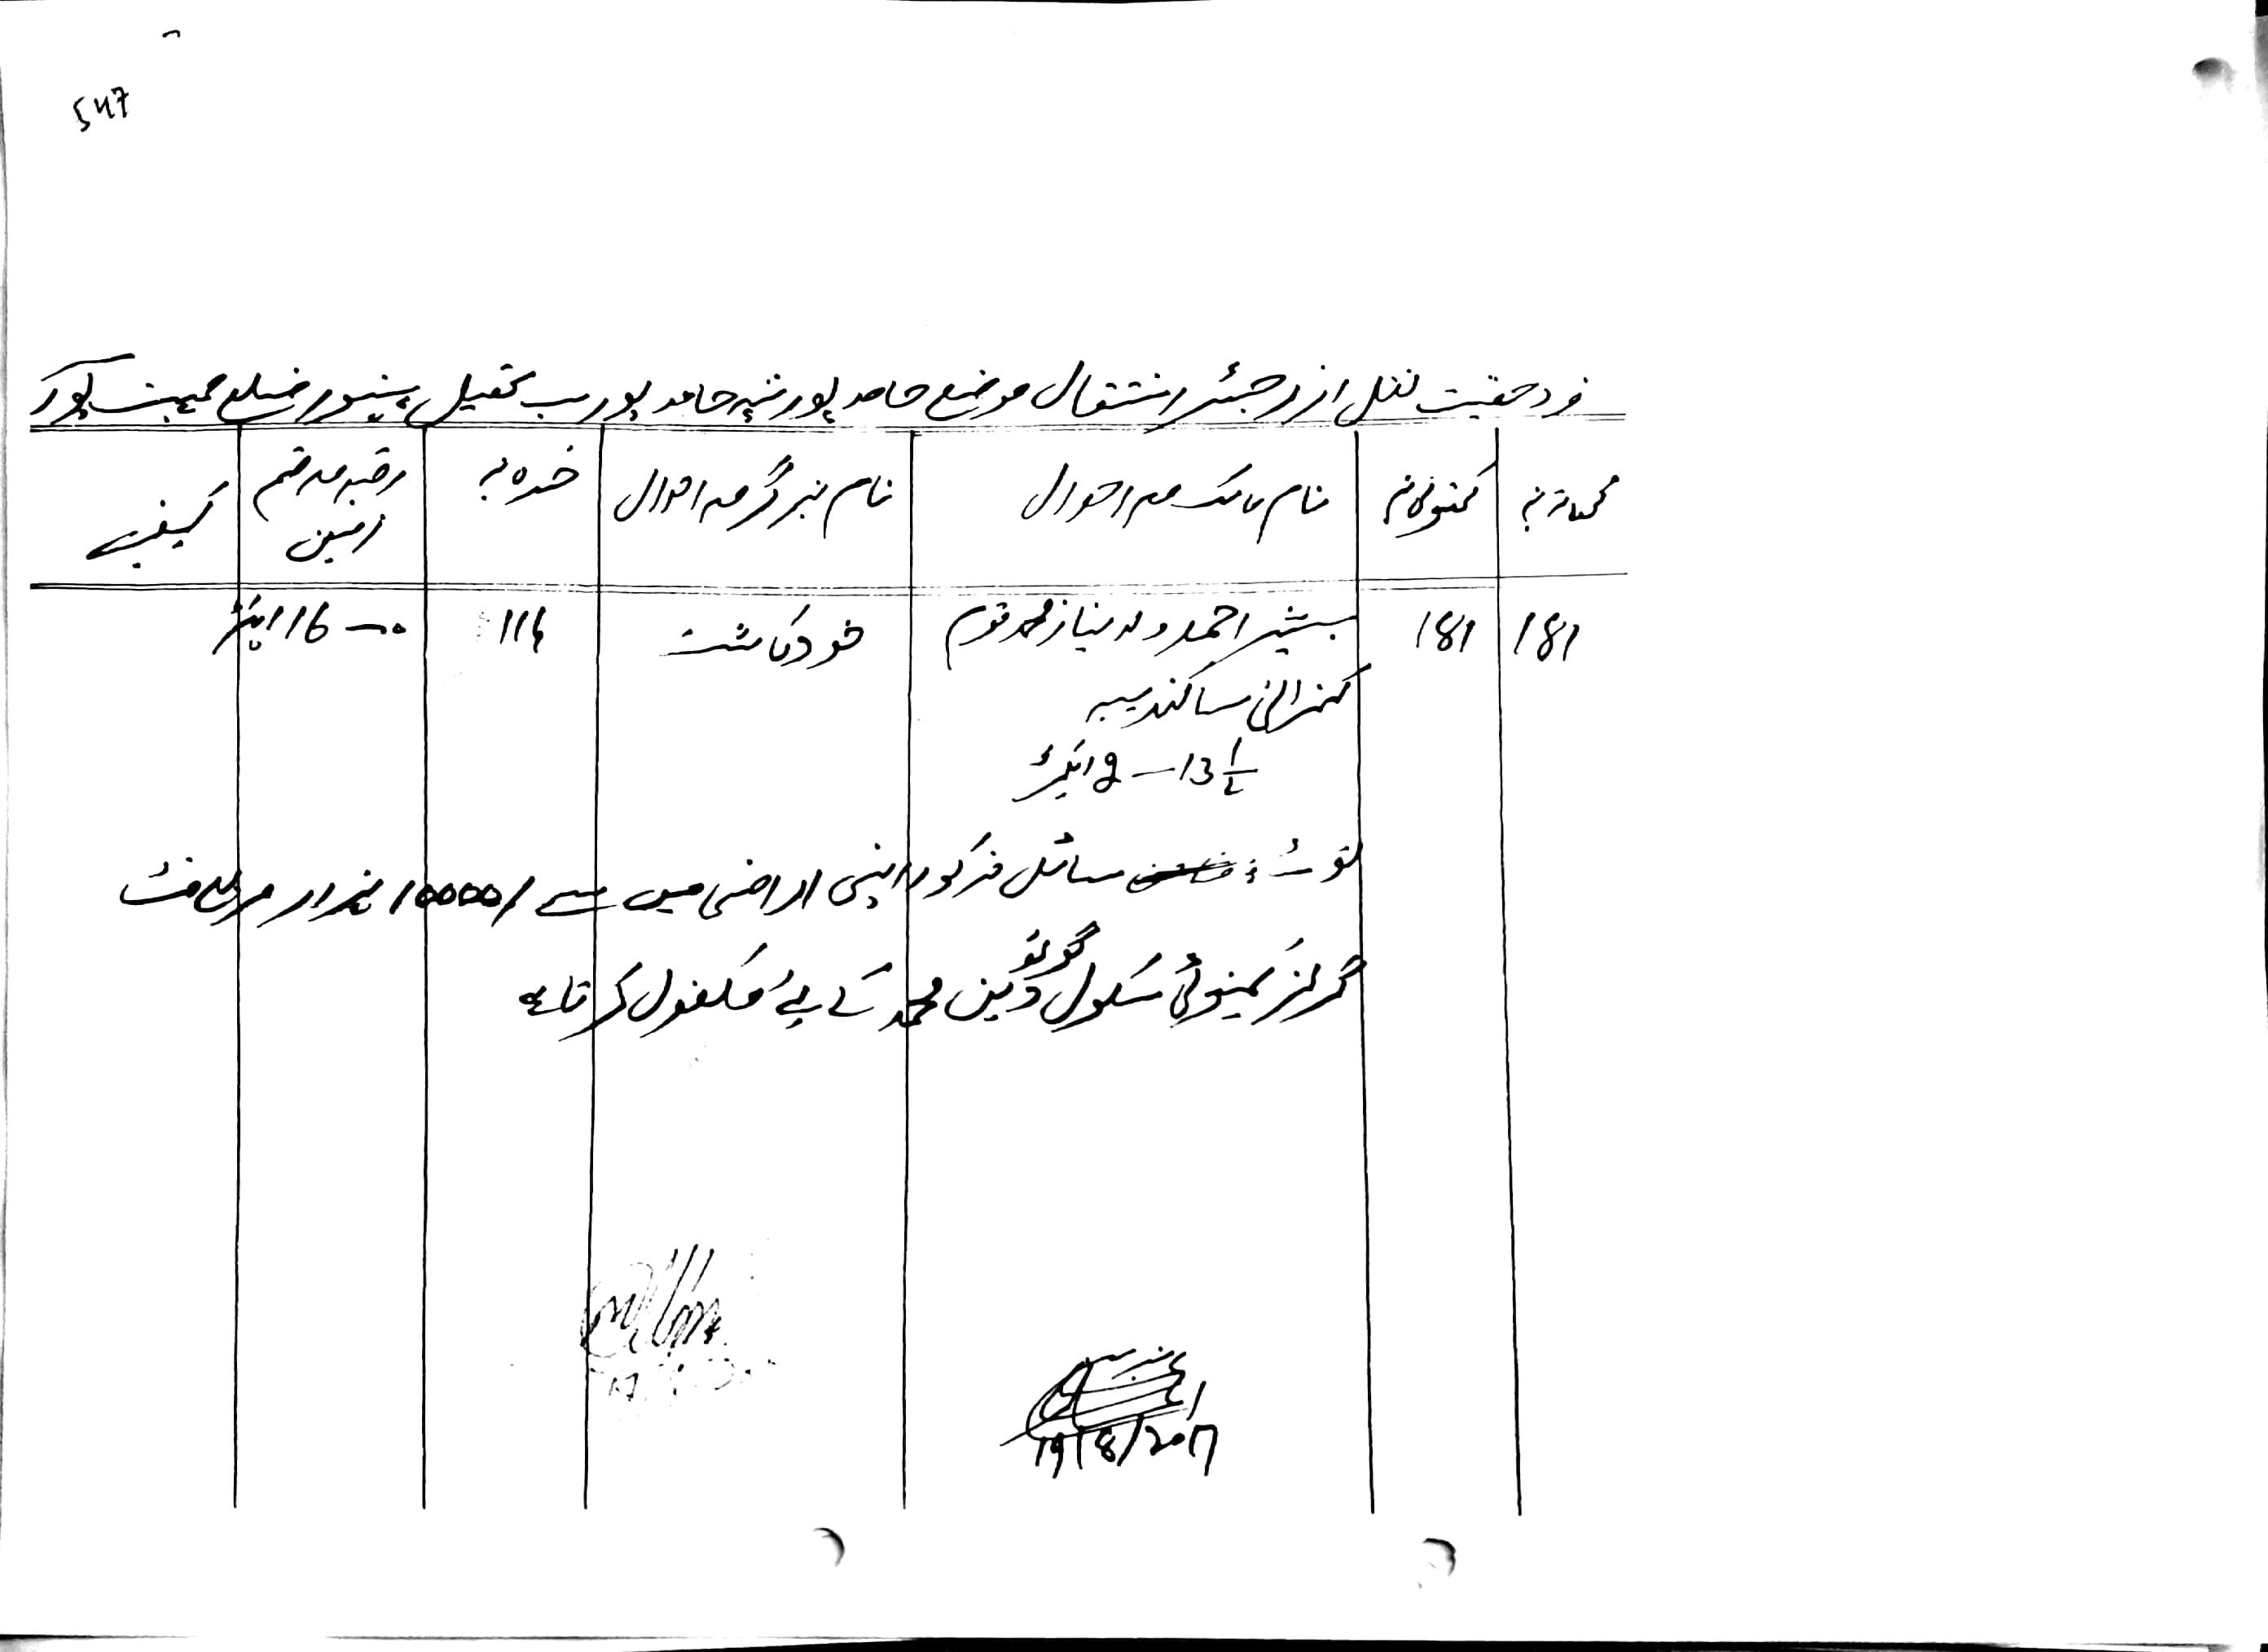 547
فرد حقیت نقل از رجسٹر انتقال موضع حامد پور تپہ حامد پور ب تحصیل ضلع صحبت پور
کھاتہ نمبر کھتونی نمبر نام مالک معہ احوال نام بزگر معہ احوال خسرہ نمبر رقبہ معہ قسم زمین کیفیت
181 181 بشیر احمد ولد نیاز محمد قوم خود کاشت 116 16 ایکڑ
ساکندیہہ
13 1/2 — 2 ایکڑ
نوٹ: سائل مذکور اپنی اراضی میں سے 10000/ ہزار مربع فٹ
گرلز کمیونٹی سکول گوٹھ دین محمد کے لیے مکفول کرتا ہے
19/8/2017